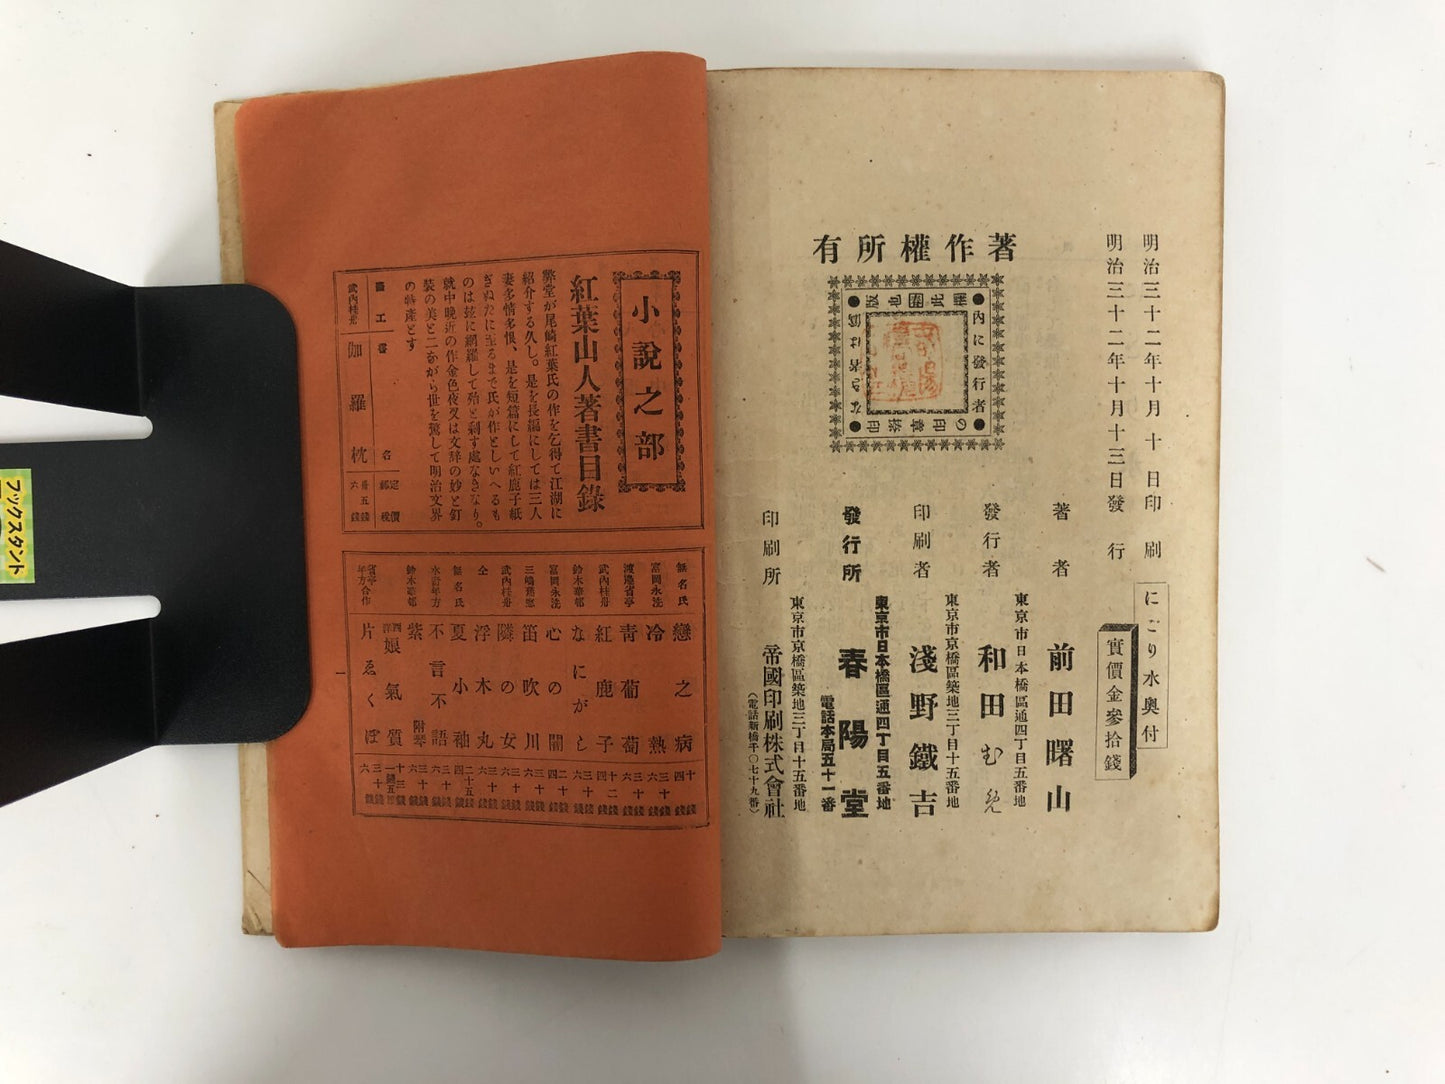 明治三十二年十月十日印刷
明治三十二年十月十三日發行
にごり水奧付
實價金參拾錢
著者
東京市日本橋區通四丁目五番地
前田曙山
發行者
東京市京橋區築地三丁目十五番地
和田む
印刷者
淺野鐵吉
發行所
東京市日本橋區通四丁目五番地
春陽堂
電話本局五十一番
印刷所
東京市京橋區築地三丁目十五番地
帝國印刷株式會社
(電話新橋千〇七十九番)
著作權所有
內に發行者
の印章捺印
なき者は僞
版也
小說之部
紅葉山人著書目錄
弊堂が尾崎紅葉氏の作を乞得て江湖に
紹介する久し。是を長編にしては三人
妻多情多恨、是を短篇にして紅鹿子紙
きぬたに至るまで氏が作としいへるも
のは玆に網羅して殆と剩す處なきなり。
就中晚近の作金色夜叉は文辞の妙と釘
裝の美と二ながら世を驚して明治文界
の特產とす
畫工
書名
定價
郵稅
武內桂舟
伽羅枕
卅五錢
六錢
無名氏
戀之病
十錢
四錢
富岡永洗
冷熱
三十錢
六錢
渡邊省亭
靑葡萄
三十錢
六錢
武內桂舟
紅鹿子
十二錢
四錢
鈴木華邨
なにがし
三十錢
六錢
富岡永洗
心の闇
二十錢
四錢
笛吹川
三十錢
六錢
武內桂舟
隣の女
三十錢
六錢
仝
浮木丸
三十錢
六錢
無名氏
夏小袖
二十五錢
四錢
水野年方
不言不語
三十錢
六錢
鈴木華邨
紫
附琴
三十錢
六錢
西洋娘氣質
省亭年方合作
片ゑくぼ
三十錢
六錢
一
ブックスタンド